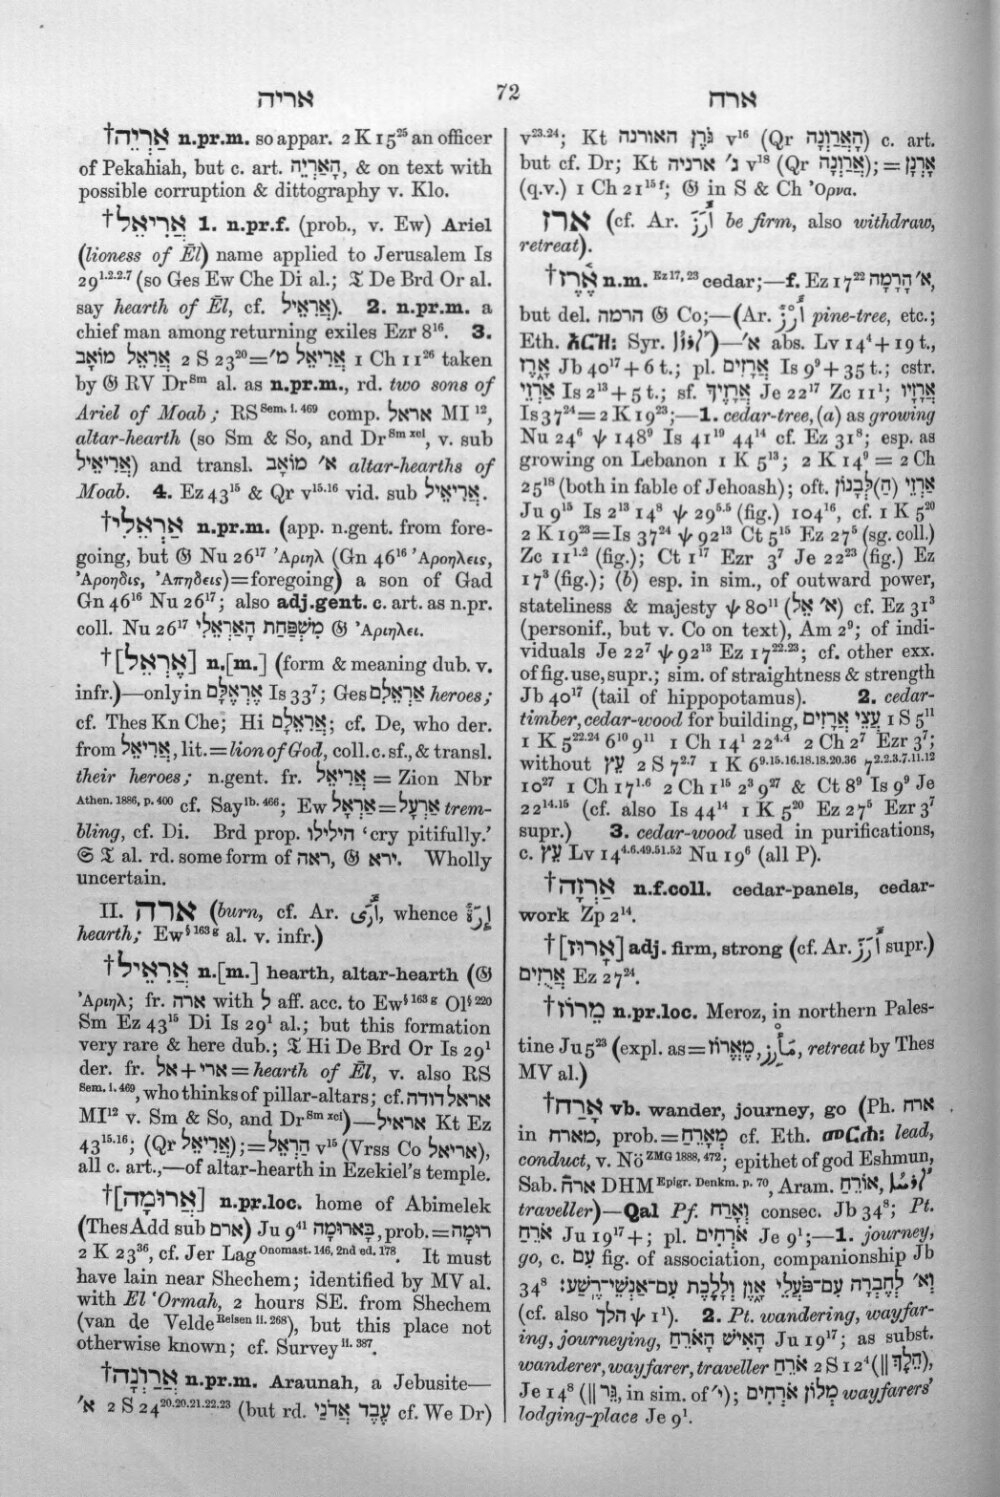 אריה
72
ארח
†אַרְיֵה n.pr.m. so appar. 2 K 15²⁵ an officer
of Pekahiah, but c. art. הָאַרְיֵה, & on text with
possible corruption & dittography v. Klo.
†אֲרִיאֵל 1. n.pr.f. (prob., v. Ew) Ariel
(lioness of Ēl) name applied to Jerusalem Is
29¹·²·²·⁷ (so Ges Ew Che Di al.; 𝔗 De Brd Or al.
say hearth of Ēl, cf. אֲרִאֵיל). 2. n.pr.m. a
chief man among returning exiles Ezr 8¹⁶. 3.
אֲרִאֵל מוֹאָב 2 S 23²⁰=אֲרִיאֵל מ׳ 1 Ch 11²⁶ taken
by 𝔊 RV Dr^Sm al. as n.pr.m., rd. two sons of
Ariel of Moab; RS^Sem. i. 469 comp. אראל MI ¹²,
altar-hearth (so Sm & So, and Dr^Sm xci, v. sub
אֲרִיאֵיל) and transl. א׳ מוֹאָב altar-hearths of
Moab. 4. Ez 43¹⁵ & Qr v¹⁵·¹⁶ vid. sub אֲרִיאֵיל.
†אַרְאֵלִי n.pr.m. (app. n.gent. from fore-
going, but 𝔊 Nu 26¹⁷ Ἀριηλ (Gn 46¹⁶ Ἀροηλεις,
Ἀροηδις, Ἀπηδεις)=foregoing) a son of Gad
Gn 46¹⁶ Nu 26¹⁷; also adj.gent. c. art. as n.pr.
coll. Nu 26¹⁷ מִשְׁפַּחַת הָאַרְאֵלִי 𝔊 Ἀριηλει.
†[אֶרְאֵל] n.[m.] (form & meaning dub. v.
infr.)—only in אֶרְאֶלָּם Is 33⁷; Ges אֶרְאֵלָם heroes;
cf. Thes Kn Che; Hi אֲרִאֵלָם; cf. De, who der.
from אֲרִיאֵל, lit.=lion of God, coll. c. sf., & transl.
their heroes; n.gent. fr. אֲרִיאֵל = Zion Nbr
Athen. 1886, p. 400 cf. Say^ib. 466; Ew אַרְאָל=אַרְעָל trem-
bling, cf. Di. Brd prop. הילילו 'cry pitifully.'
𝔖 𝔗 al. rd. some form of ראה, 𝔊 ירא. Wholly
uncertain.
II. ארה (burn, cf. Ar. أَرَى, whence إِرَةٌ
hearth; Ew^§ 163 g al. v. infr.)
†אֲרִאֵיל n.[m.] hearth, altar-hearth (𝔊
Ἀριηλ; fr. ארה with ל aff. acc. to Ew^§ 163 g Ol^§ 220
Sm Ez 43¹⁵ Di Is 29¹ al.; but this formation
very rare & here dub.; 𝔗 Hi De Brd Or Is 29¹
der. fr. ארי + אל = hearth of Ēl, v. also RS
Sem. i. 469, who thinks of pillar-altars; cf. אראל דודה
MI¹² v. Sm & So, and Dr^Sm xci)—אראיל Kt Ez
43¹⁵·¹⁶; (Qr אֲרִיאֵל);=הַרְאֵל v¹⁵ (Vrss Co אריאל),
all c. art.,—of altar-hearth in Ezekiel's temple.
†[אֲרוּמָה] n.pr.loc. home of Abimelek
(Thes Add sub ארם) Ju 9⁴¹ בָּארוּמָה, prob.=רוּמָה
2 K 23³⁶, cf. Jer Lag^Onomast. 146, 2nd ed. 178. It must
have lain near Shechem; identified by MV al.
with El ‘Ormah, 2 hours SE. from Shechem
(van de Velde^Reisen ii. 268), but this place not
otherwise known; cf. Survey^ii. 387.
†אֲרַוְנָה n.pr.m. Araunah, a Jebusite—
א׳ 2 S 24²⁰·²⁰·²¹·²²·²³ (but rd. עֶבֶד אֲדֹנִי cf. We Dr)
v²³·²⁴; Kt גֹּרֶן האורנה v¹⁶ (Qr הָאֲרַוְנָה) c. art.
but cf. Dr; Kt ג׳ ארניה v¹⁸ (Qr אֲרַוְנָה);=אָרְנָן
(q.v.) 1 Ch 21¹⁵ ᶠ; 𝔊 in S & Ch Ὀρνα.
ארז (cf. Ar. أَرَزَ be firm, also withdraw,
retreat).
†אֶרֶז n.m. Ez 17, 23 cedar;—f. Ez 17²² א׳ הָרָמָה,
but del. הרמה 𝔊 Co;—(Ar. أَرْزٌ pine-tree, etc.;
Eth. አርዝ: Syr. ܐܪܙܐ)—א׳ abs. Lv 14⁴ + 19 t.,
אָרֶז Jb 40¹⁷ + 6 t.; pl. אֲרָזִים Is 9⁹ + 35 t.; cstr.
אַרְזֵי Is 2¹³ + 5 t.; sf. אֲרָזֶיךָ Je 22⁷ Zc 11¹; אֲרָזָיו
Is 37²⁴ = 2 K 19²³;—1. cedar-tree, (a) as growing
Nu 24⁶ ψ 148⁹ Is 41¹⁹ 44¹⁴ cf. Ez 31⁸; esp. as
growing on Lebanon 1 K 5¹³; 2 K 14⁹ = 2 Ch
25¹⁸ (both in fable of Jehoash); oft. אַרְזֵי (הַ)לְּבָנוֹן
Ju 9¹⁵ Is 2¹³ 14⁸ ψ 29⁵·⁵ (fig.) 104¹⁶, cf. 1 K 5²⁰
2 K 19²³=Is 37²⁴ ψ 92¹³ Ct 5¹⁵ Ez 27⁵ (sg. coll.)
Zc 11¹·² (fig.); Ct 1¹⁷ Ezr 3⁷ Je 22²³ (fig.) Ez
17³ (fig.); (b) esp. in sim., of outward power,
stateliness & majesty ψ 80¹¹ (א׳ אֵל) cf. Ez 31³
(personif., but v. Co on text), Am 2⁹; of indi-
viduals Je 22⁷ ψ 92¹³ Ez 17²²·²³; cf. other exx.
of fig. use, supr.; sim. of straightness & strength
Jb 40¹⁷ (tail of hippopotamus). 2. cedar-
timber, cedar-wood for building, עֲצֵי אֲרָזִים 1 S 5¹¹
1 K 5²²·²⁴ 6¹⁰ 9¹¹ 1 Ch 14¹ 22⁴·⁴ 2 Ch 2⁷ Ezr 3⁷;
without עֵץ 2 S 7²·⁷ 1 K 6⁹·¹⁵·¹⁶·¹⁸·¹⁸·²⁰·³⁶ 7²·²·³·⁷·¹¹·¹²
10²⁷ 1 Ch 17¹·⁶ 2 Ch 1¹⁵ 2³ 9²⁷ & Ct 8⁹ Is 9⁹ Je
22¹⁴·¹⁵ (cf. also Is 44¹⁴ 1 K 5²⁰ Ez 27⁵ Ezr 3⁷
supr.) 3. cedar-wood used in purifications,
c. עֵץ Lv 14⁴·⁶·⁴⁹·⁵¹·⁵² Nu 19⁶ (all P).
†אַרְזָה n.f.coll. cedar-panels, cedar-
work Zp 2¹⁴.
†[אָרוּז] adj. firm, strong (cf. Ar. أَرَزَ supr.)
אֲרֻזִים Ez 27²⁴.
†מֵרוֹז n.pr.loc. Meroz, in northern Pales-
tine Ju 5²³ (expl. as=מֶאֱרוֹז, مَأْرِز, retreat by Thes
MV al.)
†אָרַח vb. wander, journey, go (Ph. ארח
in מארח, prob.=מְאָרֵחַ cf. Eth. መርሐ: lead,
conduct, v. Nö^ZMG 1888, 472; epithet of god Eshmun,
Sab. ארח DHM^Epigr. Denkm. p. 70, Aram. אוֹרַח, ܐܘܪܚܐ
traveller)—Qal Pf. וְאָרַח consec. Jb 34⁸; Pt.
אֹרֵחַ Ju 19¹⁷ +; pl. אֹרְחִים Je 9¹;—1. journey,
go, c. עִם fig. of association, companionship Jb
34⁸ וְא׳ לְחֶבְרָה עִם־פֹּעֲלֵי אָוֶן וְלָלֶכֶת עִם־אַנְשֵׁי־רֶשַׁע׃
(cf. also הלך ψ 1¹). 2. Pt. wandering, wayfar-
ing, journeying, הָאִישׁ הָאֹרֵחַ Ju 19¹⁷; as subst.
wanderer, wayfarer, traveller אֹרֵחַ 2 S 12⁴ (‖ הֵלֶךְ),
Je 14⁸ (‖ גֵּר, in sim. of י׳); מְלוֹן אֹרְחִים wayfarers'
lodging-place Je 9¹.